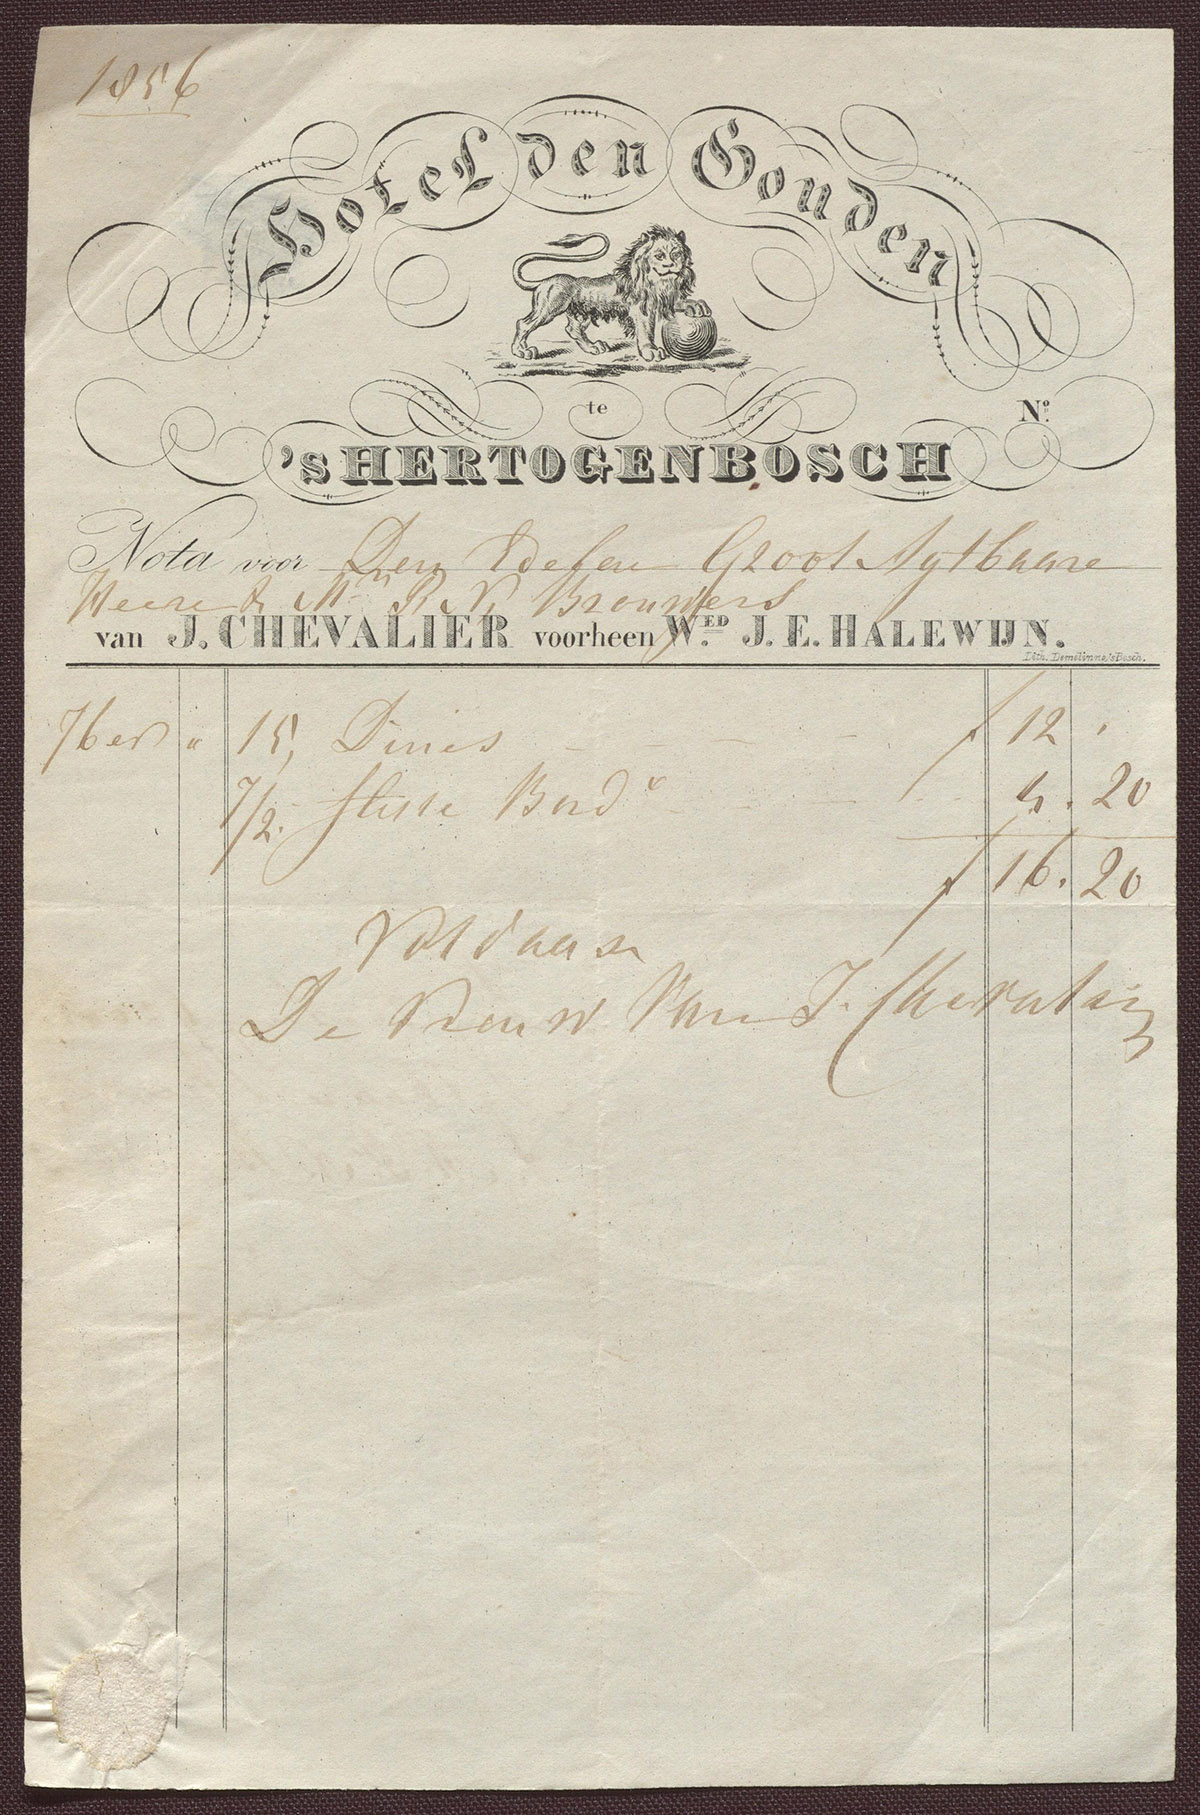 1856
Hotel den Gouden
te
Nº.
's HERTOGENBOSCH
Nota voor Den Edelen Groot Agtbaare
Heere Mr. Brouwers
van J. CHEVALIER voorheen WED. J. E. HALEWIJN.
Lith. Demelinne, 's Bosch.
15, Dines f 12
7/2. flesse Bord x 4. 20
f 16. 20
Voldaan
De Vrouw Van J. Chevalier